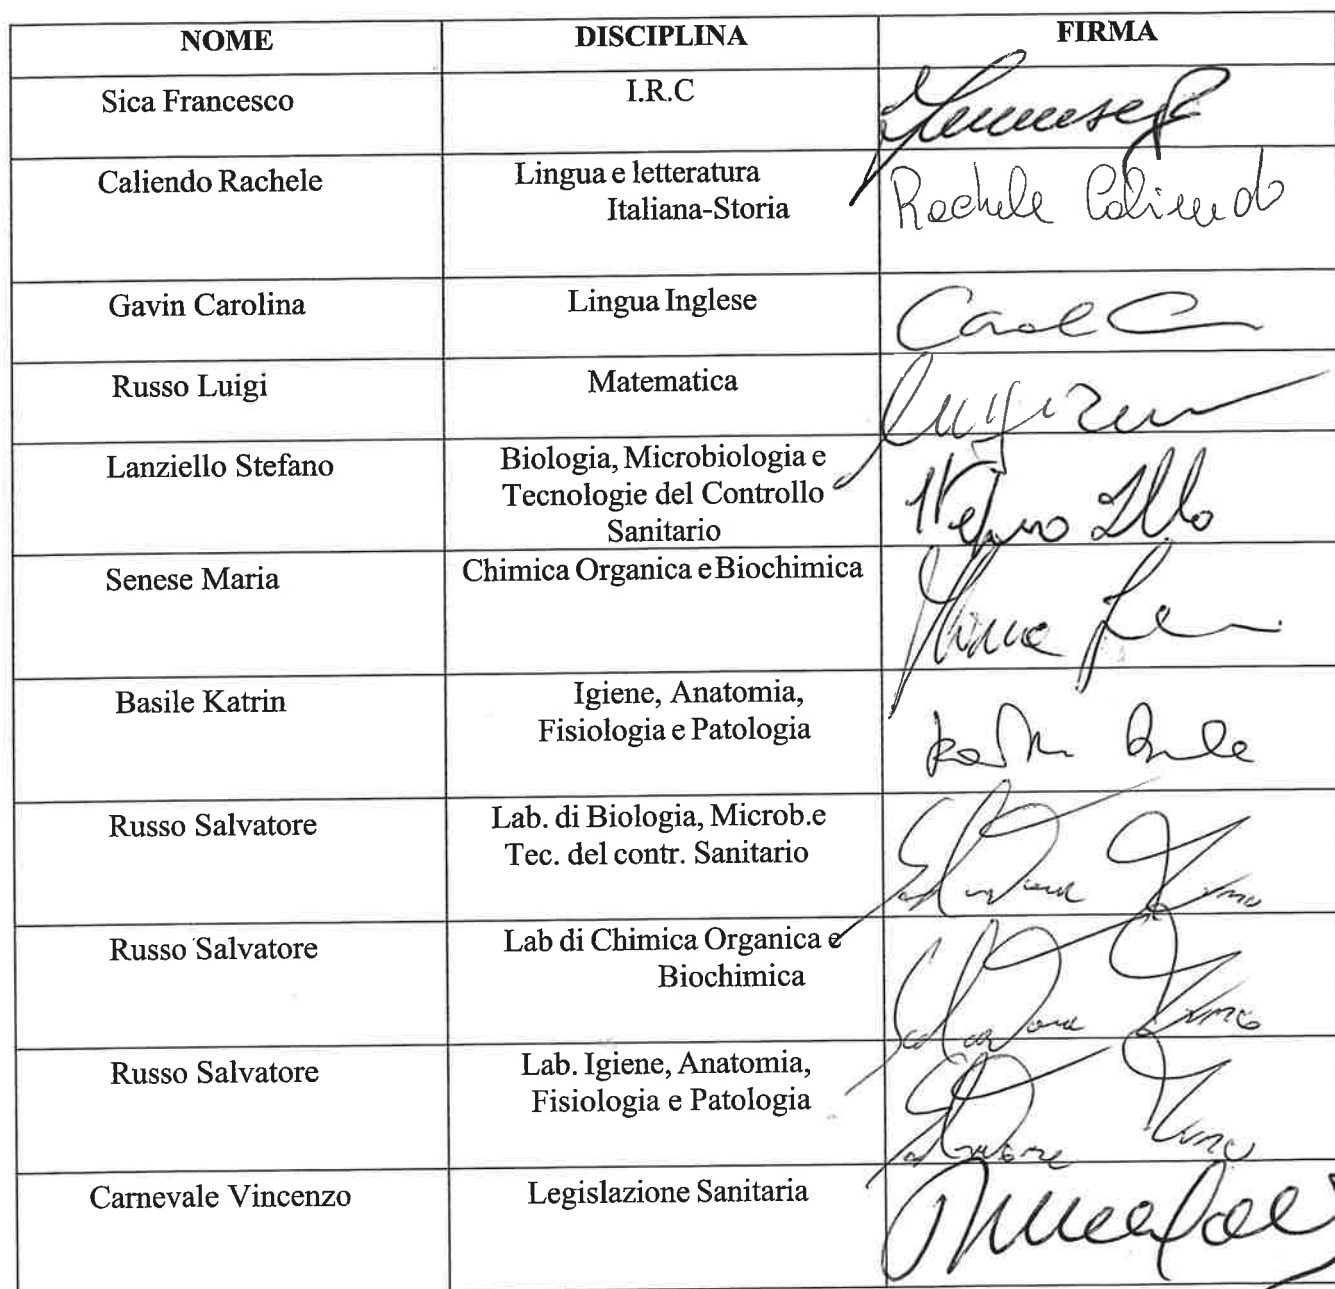 NOME DISCIPLINA FIRMA
Sica Francesco I.R.C
Caliendo Rachele Lingua e letteratura Rachele Caliendo
Italiana-Storia
Gavin Carolina Lingua Inglese
Russo Luigi Matematica
Lanziello Stefano Biologia, Microbiologia e
Tecnologie del Controllo
Sanitario
Senese Maria Chimica Organica e Biochimica
Basile Katrin Igiene, Anatomia,
Fisiologia e Patologia
Russo Salvatore Lab. di Biologia, Microb.e
Tec. del contr. Sanitario
Russo Salvatore Lab di Chimica Organica e
Biochimica
Russo Salvatore Lab. Igiene, Anatomia,
Fisiologia e Patologia
Carnevale Vincenzo Legislazione Sanitaria